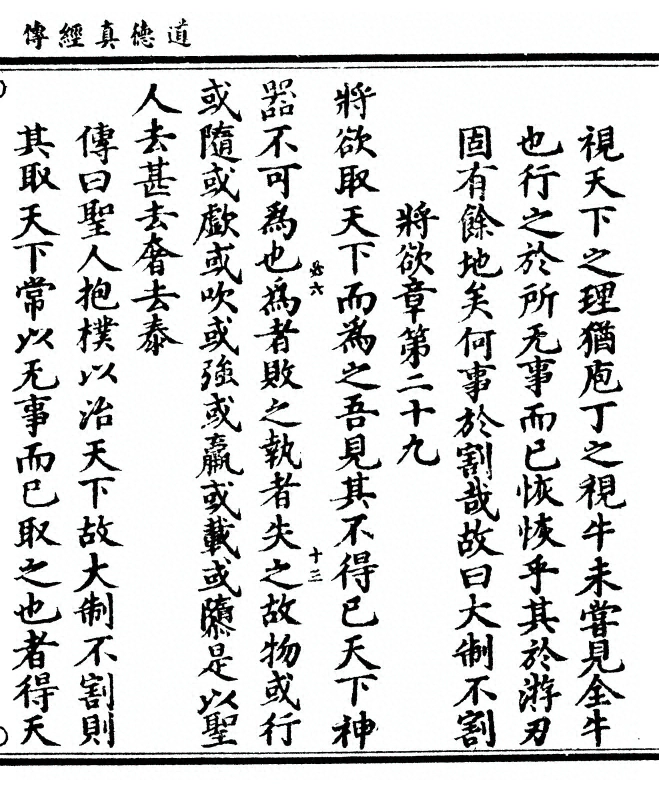 道德真經傳
視天下之理猶庖丁之視牛未嘗見全牛
也行之於所无事而已恢恢乎其於游刃
固有餘地矣何事於割哉故曰大制不割
將欲章第二十九
將欲取天下而為之吾見其不得已天下神
器不可為也為者敗之執者失之故物或行
或隨或歔或吹或強或羸或載或隳是以聖
人去甚去奢去泰
傳曰聖人抱樸以治天下故大制不割則
其取天下常以无事而已取之也者得天
十三